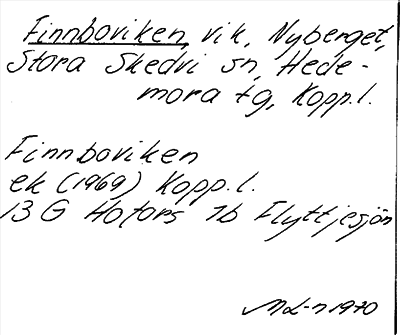 Finnboviken, vik, Nyberget,
Stora Skedvi sn, Hede-
mora tg, Kopp.l.
Finnboviken
ek (1969) Kopp.l.
13 G Hofors 1b Flyttjesjön
1970